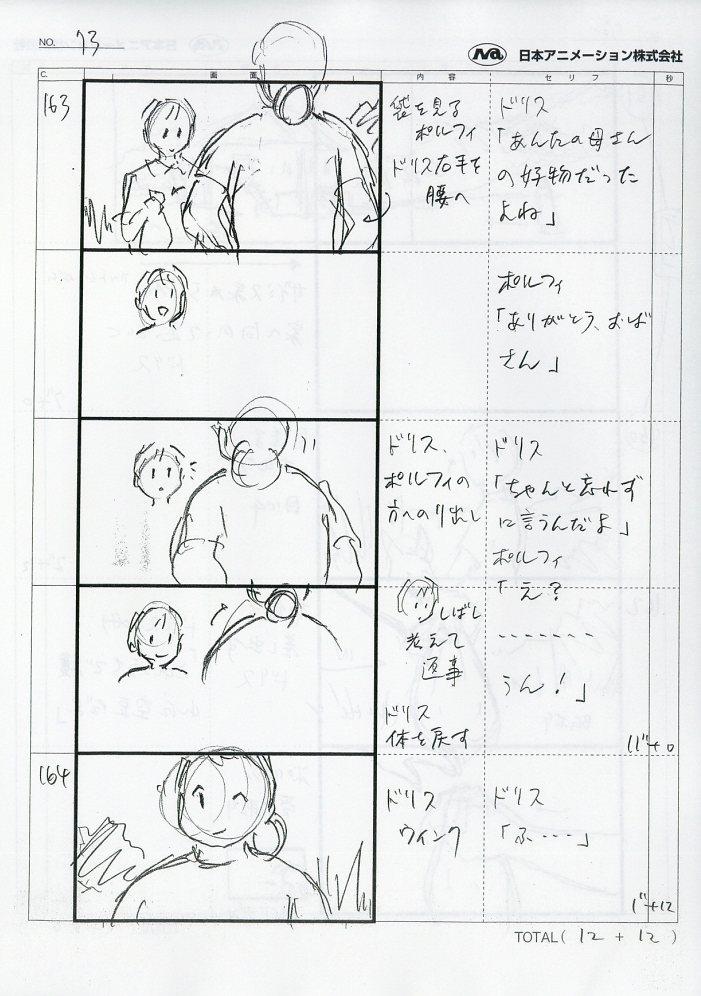 NO. 73
Na 日本アニメーション株式会社
C. 画面 内容 セリフ 秒
163
袋を見る
ポルフィ
ドリス右手を
腰へ
ドリス
「あんたの母さん
の好物だった
よね」
ポルフィ
「ありがとう、おば
さん」
ドリス、
ポルフィの
方へのり出し
ドリス
「ちゃんと忘れず
に言うんだよ」
ポルフィ
「え?
-------
うん!」
しばし
考えて
返事
ドリス
体を戻す
11"+0
164
ドリス
ウィンク
ドリス
「ふ・・・・」
1"+12
TOTAL( 12 + 12 )